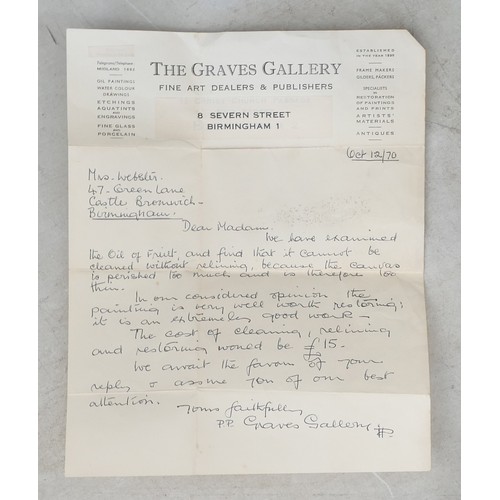 Telegrams/Telephone:
MIDLAND 1932
OIL PAINTINGS
WATER COLOUR
DRAWINGS
ETCHINGS
AQUATINTS
AND
ENGRAVINGS
FINE GLASS
AND
PORCELAIN
THE GRAVES GALLERY
FINE ART DEALERS & PUBLISHERS
8 SEVERN STREET
BIRMINGHAM 1
ESTABLISHED
IN THE YEAR
FRAME MAKERS
GILDERS, PACKERS
SPECIALISTS
IN
RESTORATION
OF PAINTINGS
AND PRINTS
ARTISTS'
MATERIALS
ANTIQUES
Oct 12/70
Mrs. Webster.
47. Green Lane
Castle Bromwich -
Birmingham.
Dear Madam.
We have examined
the Oil of Fruit, and find that it cannot be
cleaned without relining, because the canvas
is perished too much and is therefore too
thin.
In our considered opinion the
painting is very well worth restoring;
it is an extremely good work -
The cost of cleaning, relining
and restoring would be £15-
We await the favour of your
reply & assure you of our best
attention.
Yours faithfully
P.P. Graves Gallery